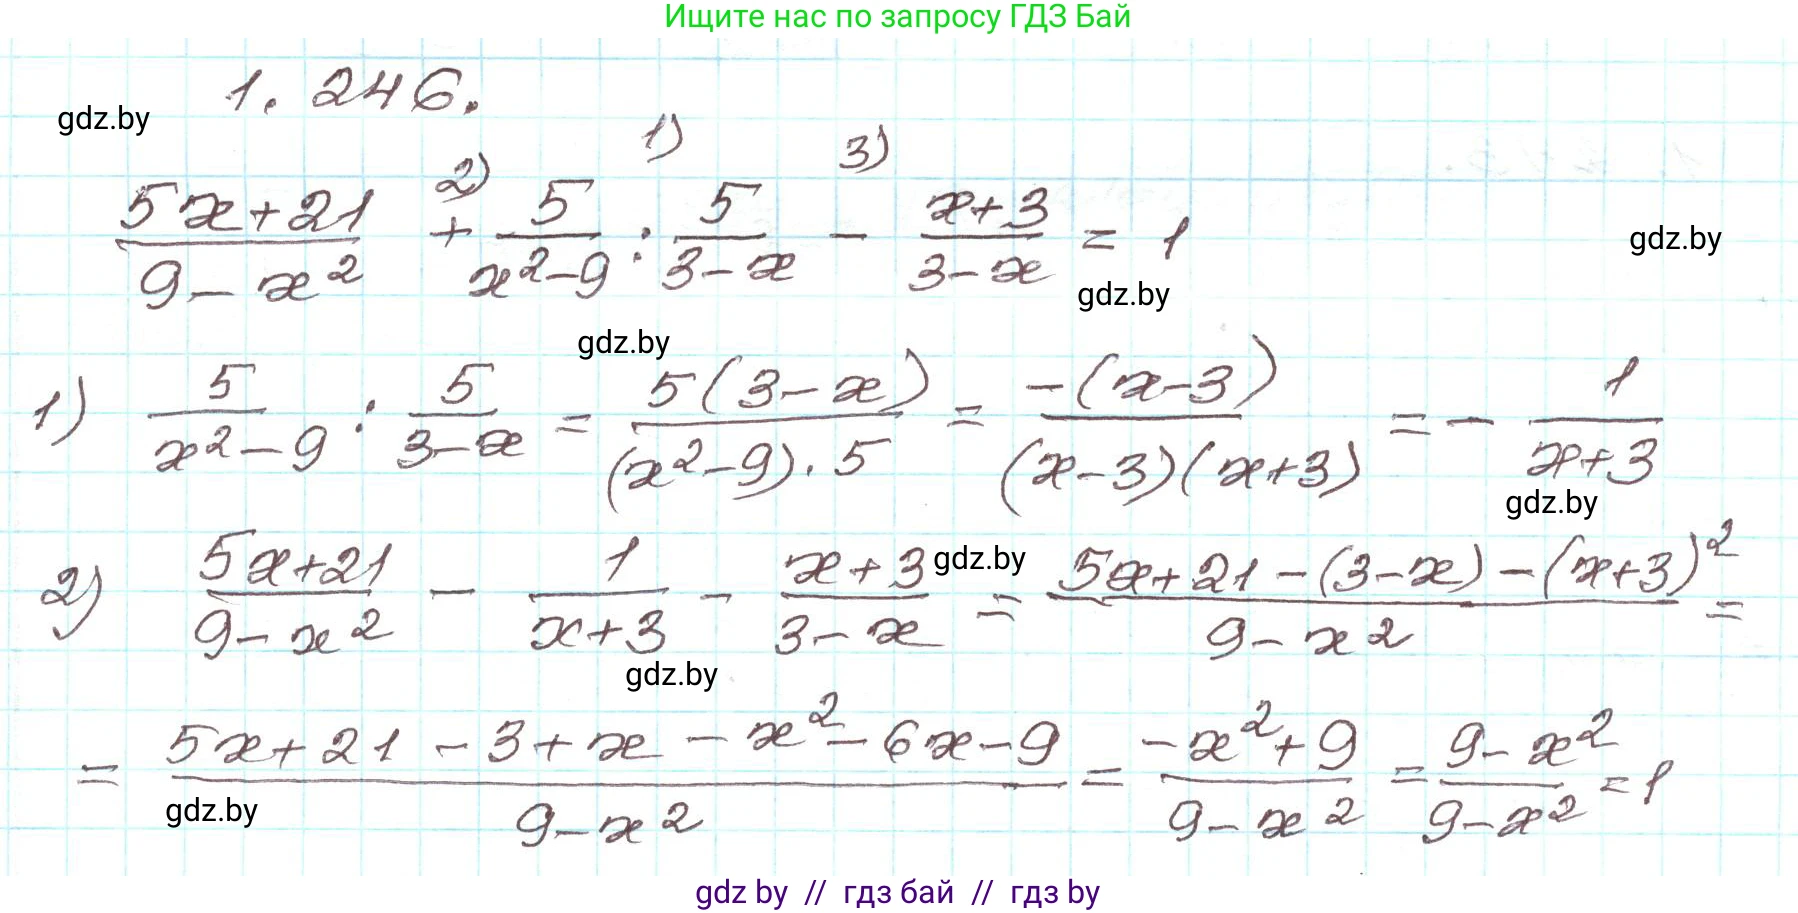 Ищите нас по запросу ГДЗ Бай
1. 246.
gdz.by
(5x+21)/(9-x²) +²⁾ 5/(x²-9) :¹⁾ 5/(3-x) -³⁾ (x+3)/(3-x) = 1
gdz.by
gdz.by
gdz.by
1) 5/(x²-9) : 5/(3-x) = 5(3-x)/((x²-9)·5) = -(x-3)/((x-3)(x+3)) = - 1/(x+3)
gdz.by
2) (5x+21)/(9-x²) - 1/(x+3) - (x+3)/(3-x) = (5x+21-(3-x)-(x+3)²)/(9-x²) =
gdz.by
gdz.by
= (5x+21-3+x-x²-6x-9)/(9-x²) = (-x²+9)/(9-x²) = (9-x²)/(9-x²) = 1
gdz.by
gdz by // гдз бай // гдз by